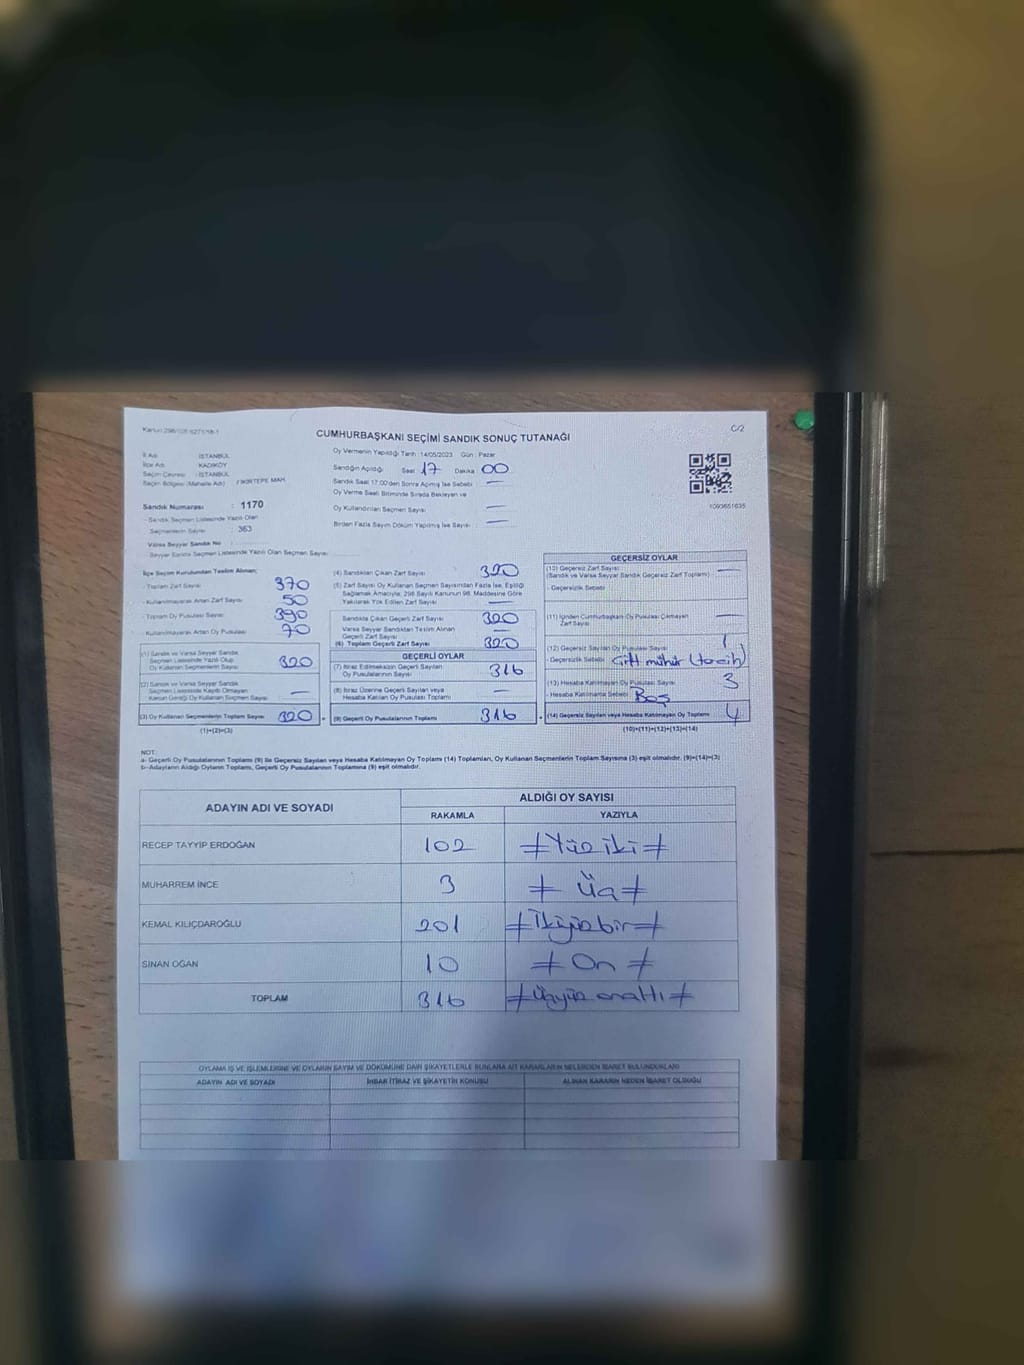 Kanun 298/105 6271/18-1
C/2
CUMHURBAŞKANI SEÇİMİ SANDIK SONUÇ TUTANAĞI
İl Adı : İSTANBUL
İlçe Adı : KADIKÖY
Seçim Çevresi : İSTANBUL
Seçim Bölgesi (Mahalle Adı) : FİKİRTEPE MAH
Sandık Numarası : 1170
Sandık Seçmen Listesinde Yazılı Olan
Seçmenlerin Sayısı : 363
Varsa Seyyar Sandık No
Seyyar Sandık Seçmen Listesinde Yazılı Olan Seçmen Sayısı
Oy Vermenin Yapıldığı Tarih : 14/05/2023 Gün : Pazar
Sandığın Açıldığı Saat 17 Dakika 00
Sandık Saat 17:00'den Sonra Açılmış İse Sebebi : —
Oy Verme Saati Bitiminde Sırada Bekleyen ve
Oy Kullandırılan Seçmen Sayısı —
Birden Fazla Sayım Döküm Yapılmış İse Sayısı : —
1093651635
İlçe Seçim Kurulundan Teslim Alınan;
- Toplam Zarf Sayısı 370
- Kullanılmayarak Artan Zarf Sayısı 50
- Toplam Oy Pusulası Sayısı 390
- Kullanılmayarak Artan Oy Pusulası 70
(1) Sandık ve Varsa Seyyar Sandık
Seçmen Listesinde Yazılı Olup
Oy Kullanan Seçmenlerin Sayısı 320
(2) Sandık ve Varsa Seyyar Sandık
Seçmen Listesinde Kayıtlı Olmayan
Kanun Gereği Oy Kullanan Seçmen Sayısı —
(3) Oy Kullanan Seçmenlerin Toplam Sayısı 320
(1)+(2)=(3)
(4) Sandıktan Çıkan Zarf Sayısı 320
(5) Zarf Sayısı Oy Kullanan Seçmen Sayısından Fazla İse, Eşitliği
Sağlamak Amacıyla; 298 Sayılı Kanunun 98. Maddesine Göre
Yakılarak Yok Edilen Zarf Sayısı —
Sandıkta Çıkan Geçerli Zarf Sayısı 320
Varsa Seyyar Sandıktan Teslim Alınan
Geçerli Zarf Sayısı —
(6) Toplam Geçerli Zarf Sayısı 320
GEÇERLİ OYLAR
(7) İtiraz Edilmeksizin Geçerli Sayılan
Oy Pusulasının Sayısı 316
(8) İtiraz Üzerine Geçerli Sayılan veya
Hesaba Katılan Oy Pusulası Toplamı —
(9) Geçerli Oy Pusulalarının Toplamı 316
GEÇERSİZ OYLAR
(10) Geçersiz Zarf Sayısı —
(Sandık ve Varsa Seyyar Sandık Geçersiz Zarf Toplamı)
- Geçersizlik Sebebi
(11) İçinden Cumhurbaşkanı Oy Pusulası Çıkmayan
Zarf Sayısı —
(12) Geçersiz Sayılan Oy Pusulası Sayısı 1
- Geçersizlik Sebebi Çift mühür (tercih)
(13) Hesaba Katılmayan Oy Pusulası Sayısı 3
- Hesaba Katılmama Sebebi Boş
(14) Geçersiz Sayılan veya Hesaba Katılmayan Oy Toplamı 4
(10)+(11)+(12)+(13)=(14)
NOT:
a- Geçerli Oy Pusulalarının Toplamı (9) ile Geçersiz Sayılan veya Hesaba Katılmayan Oy Toplamı (14) Toplamları, Oy Kullanan Seçmenlerin Toplam Sayısına (3) eşit olmalıdır. (9)+(14)=(3)
b- Adayların Aldığı Oyların Toplamı, Geçerli Oy Pusulalarının Toplamına (9) eşit olmalıdır.
ADAYIN ADI VE SOYADI ALDIĞI OY SAYISI
RAKAMLA YAZIYLA
RECEP TAYYİP ERDOĞAN 102 ≠ Yüz iki ≠
MUHARREM İNCE 3 ≠ Üç ≠
KEMAL KILIÇDAROĞLU 201 ≠ İkiyüz bir ≠
SİNAN OĞAN 10 ≠ On ≠
TOPLAM 316 ≠ Üçyüz onaltı ≠
OYLAMA İŞ VE İŞLEMLERİNE VE OYLARIN SAYIM VE DÖKÜMÜNE DAİR ŞİKAYETLERLE BUNLARA AİT KARARLARIN NELERDEN İBARET BULUNDUKLARI
ADAYIN ADI VE SOYADI İHBAR İTİRAZ VE ŞİKAYETİN KONUSU ALINAN KARARIN NEDEN İBARET OLDUĞU